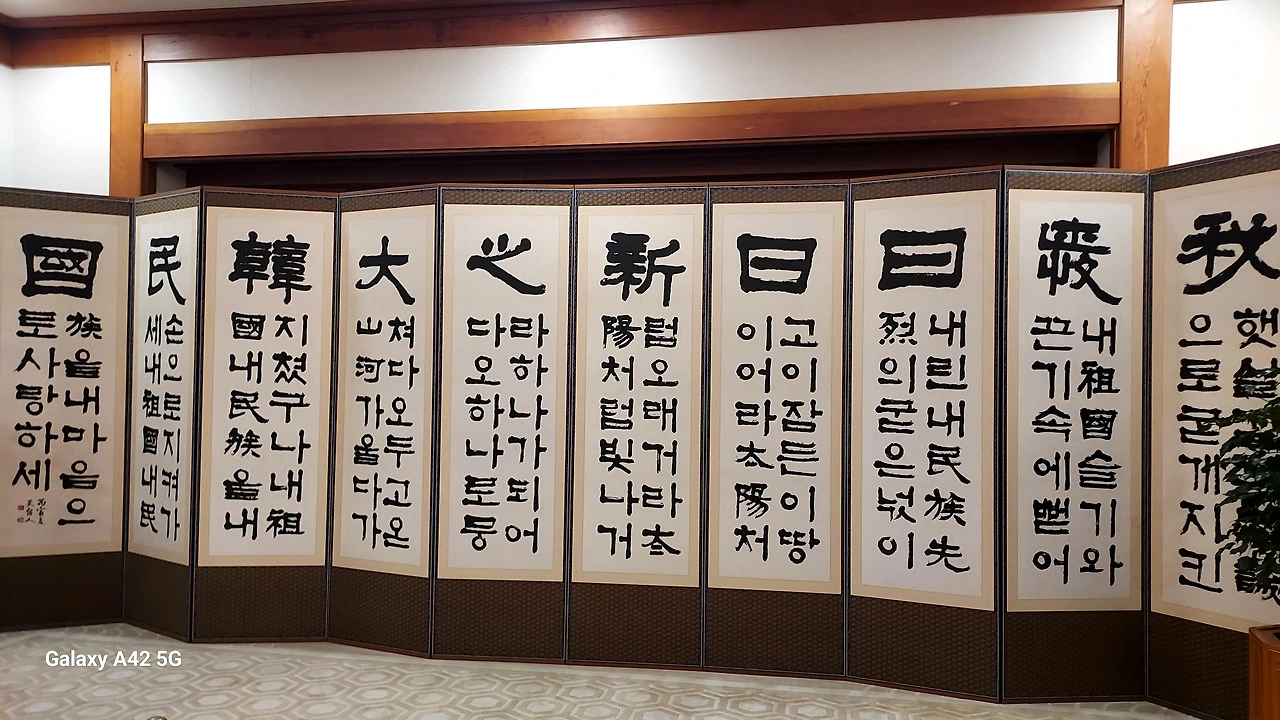 으로굳게지킨
내祖國슬기와
끈기속에뻗어
日
내린내民族先
烈의굳은넋이
日
고이잠든이땅
이어라太陽처
新
럼오래거라太
陽처럼빛나거
之
라하나가되어
다오하나로뭉
大
쳐다오두고온
山河가울다가
韓
지쳤구나내祖
國내民族을내
民
손으로지켜가
세내祖國내民
國
族을내마음으
로사랑하세
Galaxy A42 5G